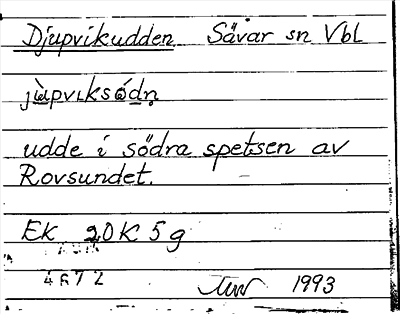 Djupvikudden Sävar sn Vbl
udde i södra spetsen av
Rovsundet.
EK 20K 5g
4672
1993